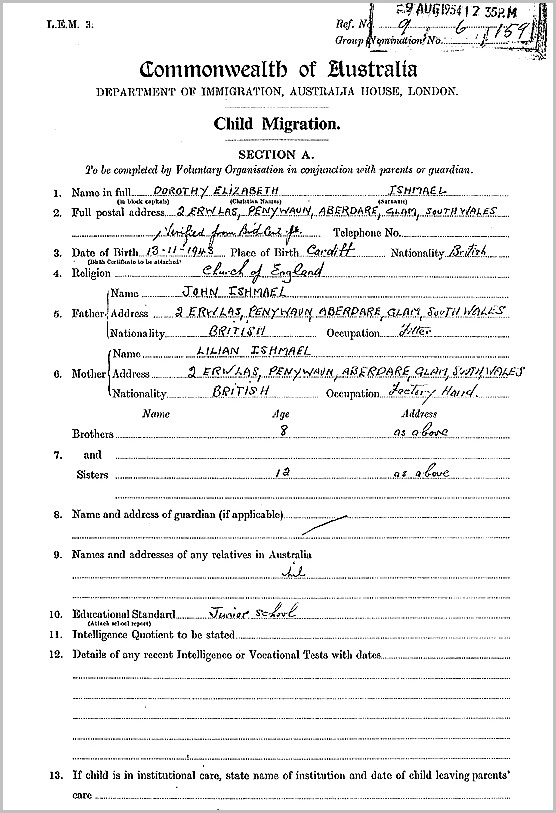 L.E.M. 3.
9 AUG 1954 12 35PM
Ref. No. 9 6 159
Group Nomination No.
Commonwealth of Australia
DEPARTMENT OF IMMIGRATION, AUSTRALIA HOUSE, LONDON.
Child Migration.
SECTION A.
To be completed by Voluntary Organisation in conjunction with parents or guardian.
1. Name in full DOROTHY ELIZABETH ISHMAEL
(in block capitals) (Christian Names) (Surname)
2. Full postal address 2 ERW LAS, PENYWAUN, ABERDARE, GLAM, SOUTH WALES
Verified from Birth Cert. Telephone No.
3. Date of Birth 13-11-1943 Place of Birth Cardiff Nationality British
(Birth Certificate to be attached)
4. Religion Church of England
Name JOHN ISHMAEL
5. Father Address 2 ERW LAS, PENYWAUN, ABERDARE, GLAM, SOUTH WALES
Nationality BRITISH Occupation Fitter
Name LILIAN ISHMAEL
6. Mother Address 2 ERW LAS, PENYWAUN, ABERDARE, GLAM, SOUTH WALES
Nationality BRITISH Occupation Factory Hand.
Name Age Address
Brothers 8 as above
7. and
Sisters 12 as above
8. Name and address of guardian (if applicable)
9. Names and addresses of any relatives in Australia
nil
10. Educational Standard Junior School
(Attach school report)
11. Intelligence Quotient to be stated
12. Details of any recent Intelligence or Vocational Tests with dates
13. If child is in institutional care, state name of institution and date of child leaving parents'
care